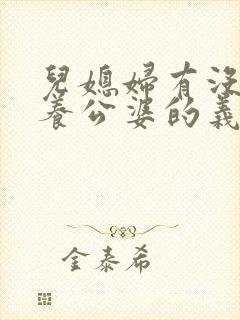 兒媳婦有沒
養公婆的義
金泰希